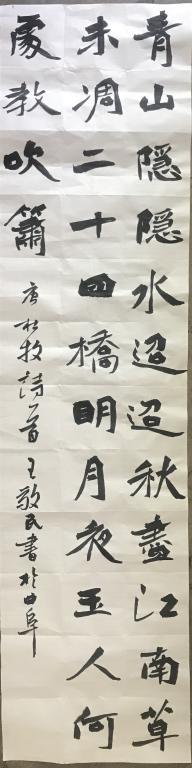 青山隐隐水迢迢秋盡江南草
未凋二十四橋明月夜玉人何
處教吹簫
唐杜牧詩一首王敬民書於曲阜